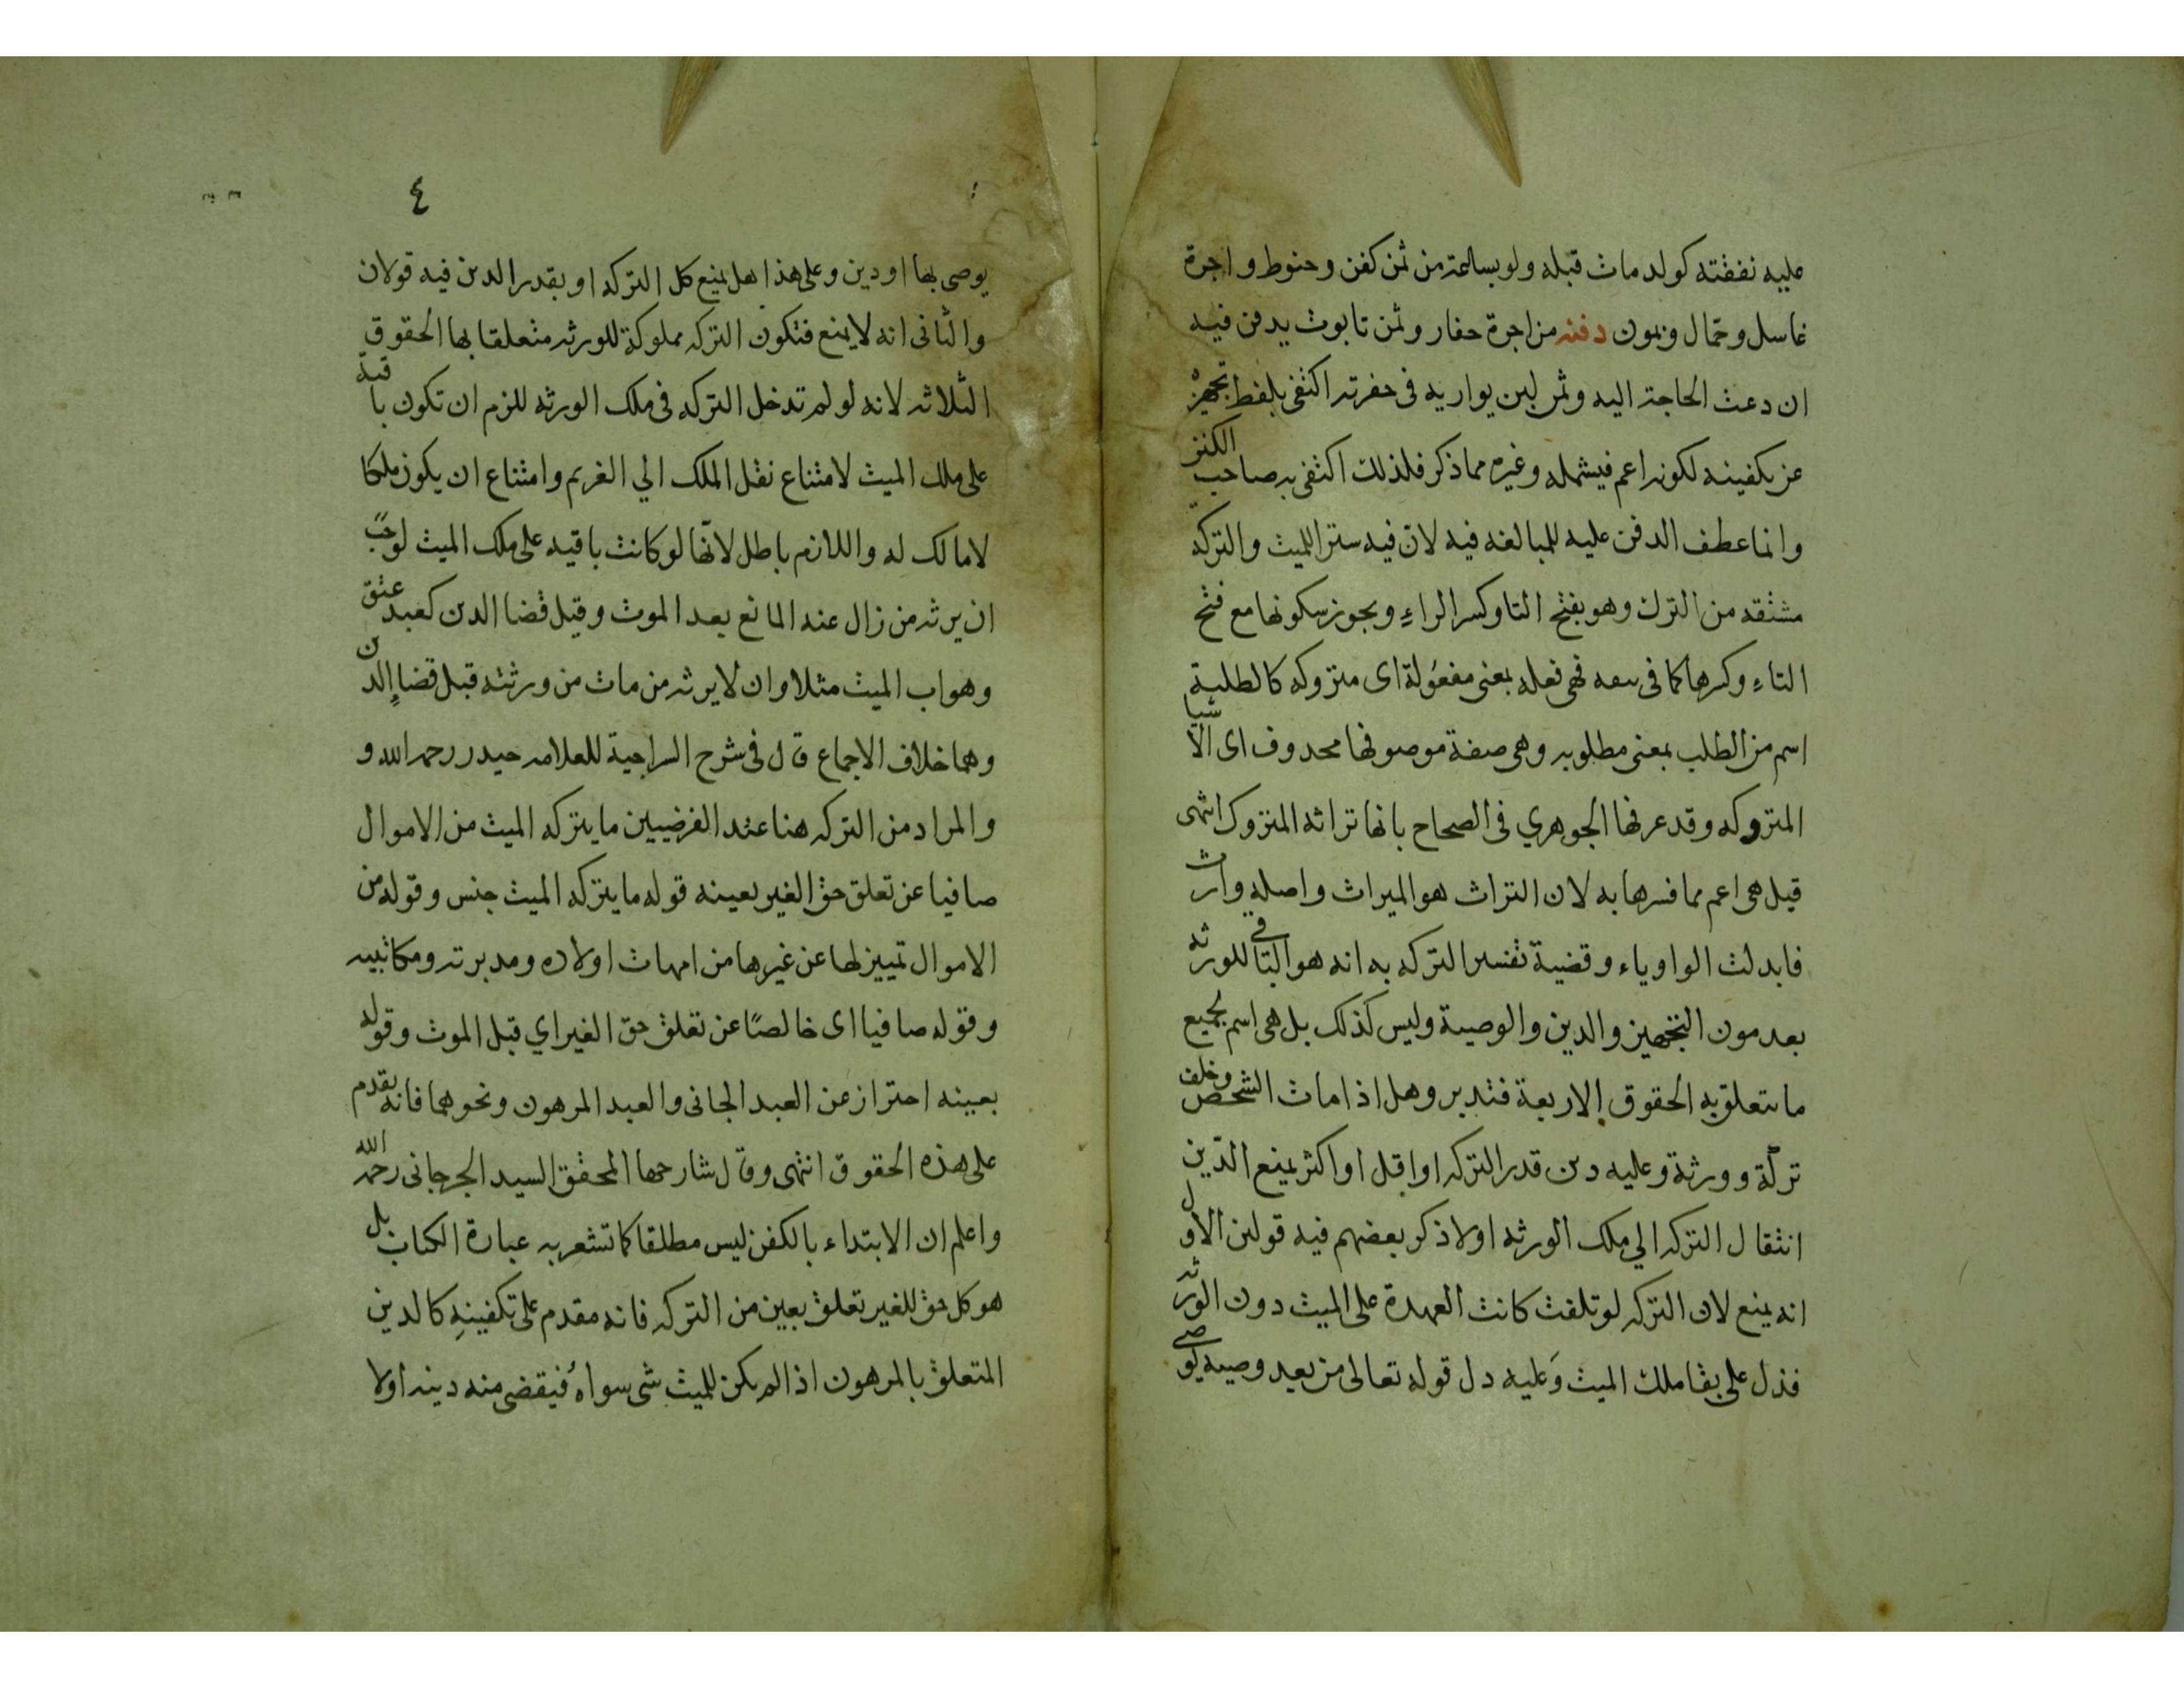 عليه نفقته كولد مات قبله ولو بساعة من ثمن كفن وحنوط واجرة
غاسل وحمال ومون دفنه من اجرة حفار وثمن تابوت يدفن فيه
ان دعت الحاجة اليه وثمن لبن يواريه فى حفرته اكتفى بلفظ تجهيز
عن تكفينه لكونه اعم فيشمله وغيره مما ذكر فلذلك اكتفى به صاحب الكنز
وانما عطف الدفن عليه للمبالغه فيه لان فيه ستر الميت والتركه
مشتقه من الترك وهو بفتح التا وكسر الراء ويجوز سكونها مع فتح
التاء وكسرها كما فى فهى فعله بمعنى مفعولة اى متروكه كالطلبة
اسم من الطلب بمعنى مطلوبه وهى صفة موصوفها محدوف اى الاشيا
المتروكه وقد عرفها الجوهري فى الصحاح بانها تراثه المتروك انتهى
قيل هى اعم مما فسرها به لان التراث هو الميراث واصله وارث
فابدلت الواو ياء وقضية تفسير التركه به انه هو الباقى للورثه
بعد مون التجهيز والدين والوصية وليس كذلك بل هى اسم لجميع
ما يتعلق به الحقوق الاربعة فتدبر وهل اذا مات الشخص وخلف
تركة وورثة وعليه دين قدر التركه او اقل او اكثر يمنع الدين
انتقال التركه الي ملك الورثه اولا ذكر بعضهم فيه قولين الاول
انه يمنع لان التركه لو تلفت كانت العهدة على الميت دون الورثه
فدل على بقا ملك الميت وعليه دل قوله تعالى من بعد وصيه يوصى
٤
يوصى بها او دين وعلى هذا هل يمنع كل التركه او بقدر الدين فيه قولان
والثانى انه لا يمنع فتكون التركه مملوكة للورثه متعلقا بها الحقوق
الثلاثه لانه لو لم تدخل التركه فى ملك الورثه للزم ان تكون باقية
على ملك الميت لامتناع نقل الملك الي الغريم وامتناع ان يكون ملكا
لا مالك له واللازم باطل لانها لو كانت باقيه على ملك الميت لوجب
ان يرثه من زال عنه المانع بعد الموت وقبل قضا الدين كعبد عتق
وهو اب الميت مثلا وان لا يرثه من مات من ورثته قبل قضاء الدين
وهما خلاف الاجماع قال فى شرح السراجية للعلامه حيدر رحمه الله و
والمراد من التركه هنا عند الفرضيين ما يتركه الميت من الاموال
صافيا عن تعلق حق الغير بعينه قوله ما يتركه الميت جنس وقوله من
الاموال تمييز لها عن غيرها من امهات اولاده ومدبرته ومكاتبيه
وقوله صافيا اى خالصا عن تعلق حق الغير اي قبل الموت وقوله
بعينه احتراز عن العبد الجانى والعبد المرهون ونحوهما فانه يقدم
على هذه الحقوق انتهى وقال شارحها المحقق السيد الجرجانى رحمه الله
واعلم ان الابتداء بالكفن ليس مطلقا كما تشعر به عبارة الكتاب بل
هو كل حق للغير تعلق بعين من التركه فانه مقدم على تكفينه كالدين
المتعلق بالمرهون اذا لم يكن للميت شى سواه فيقضى منه دينه اولا